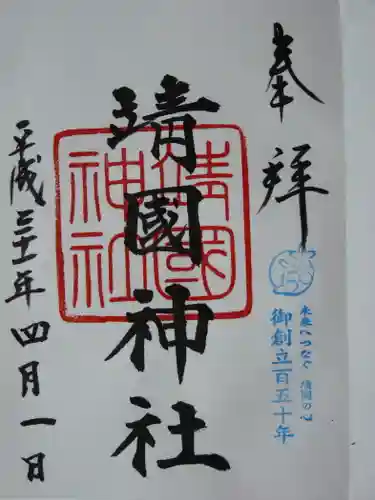 奉拝
未来へつなぐ 靖國の心
御創立百五十年
靖國神社
靖國神社
平成三十一年四月一日